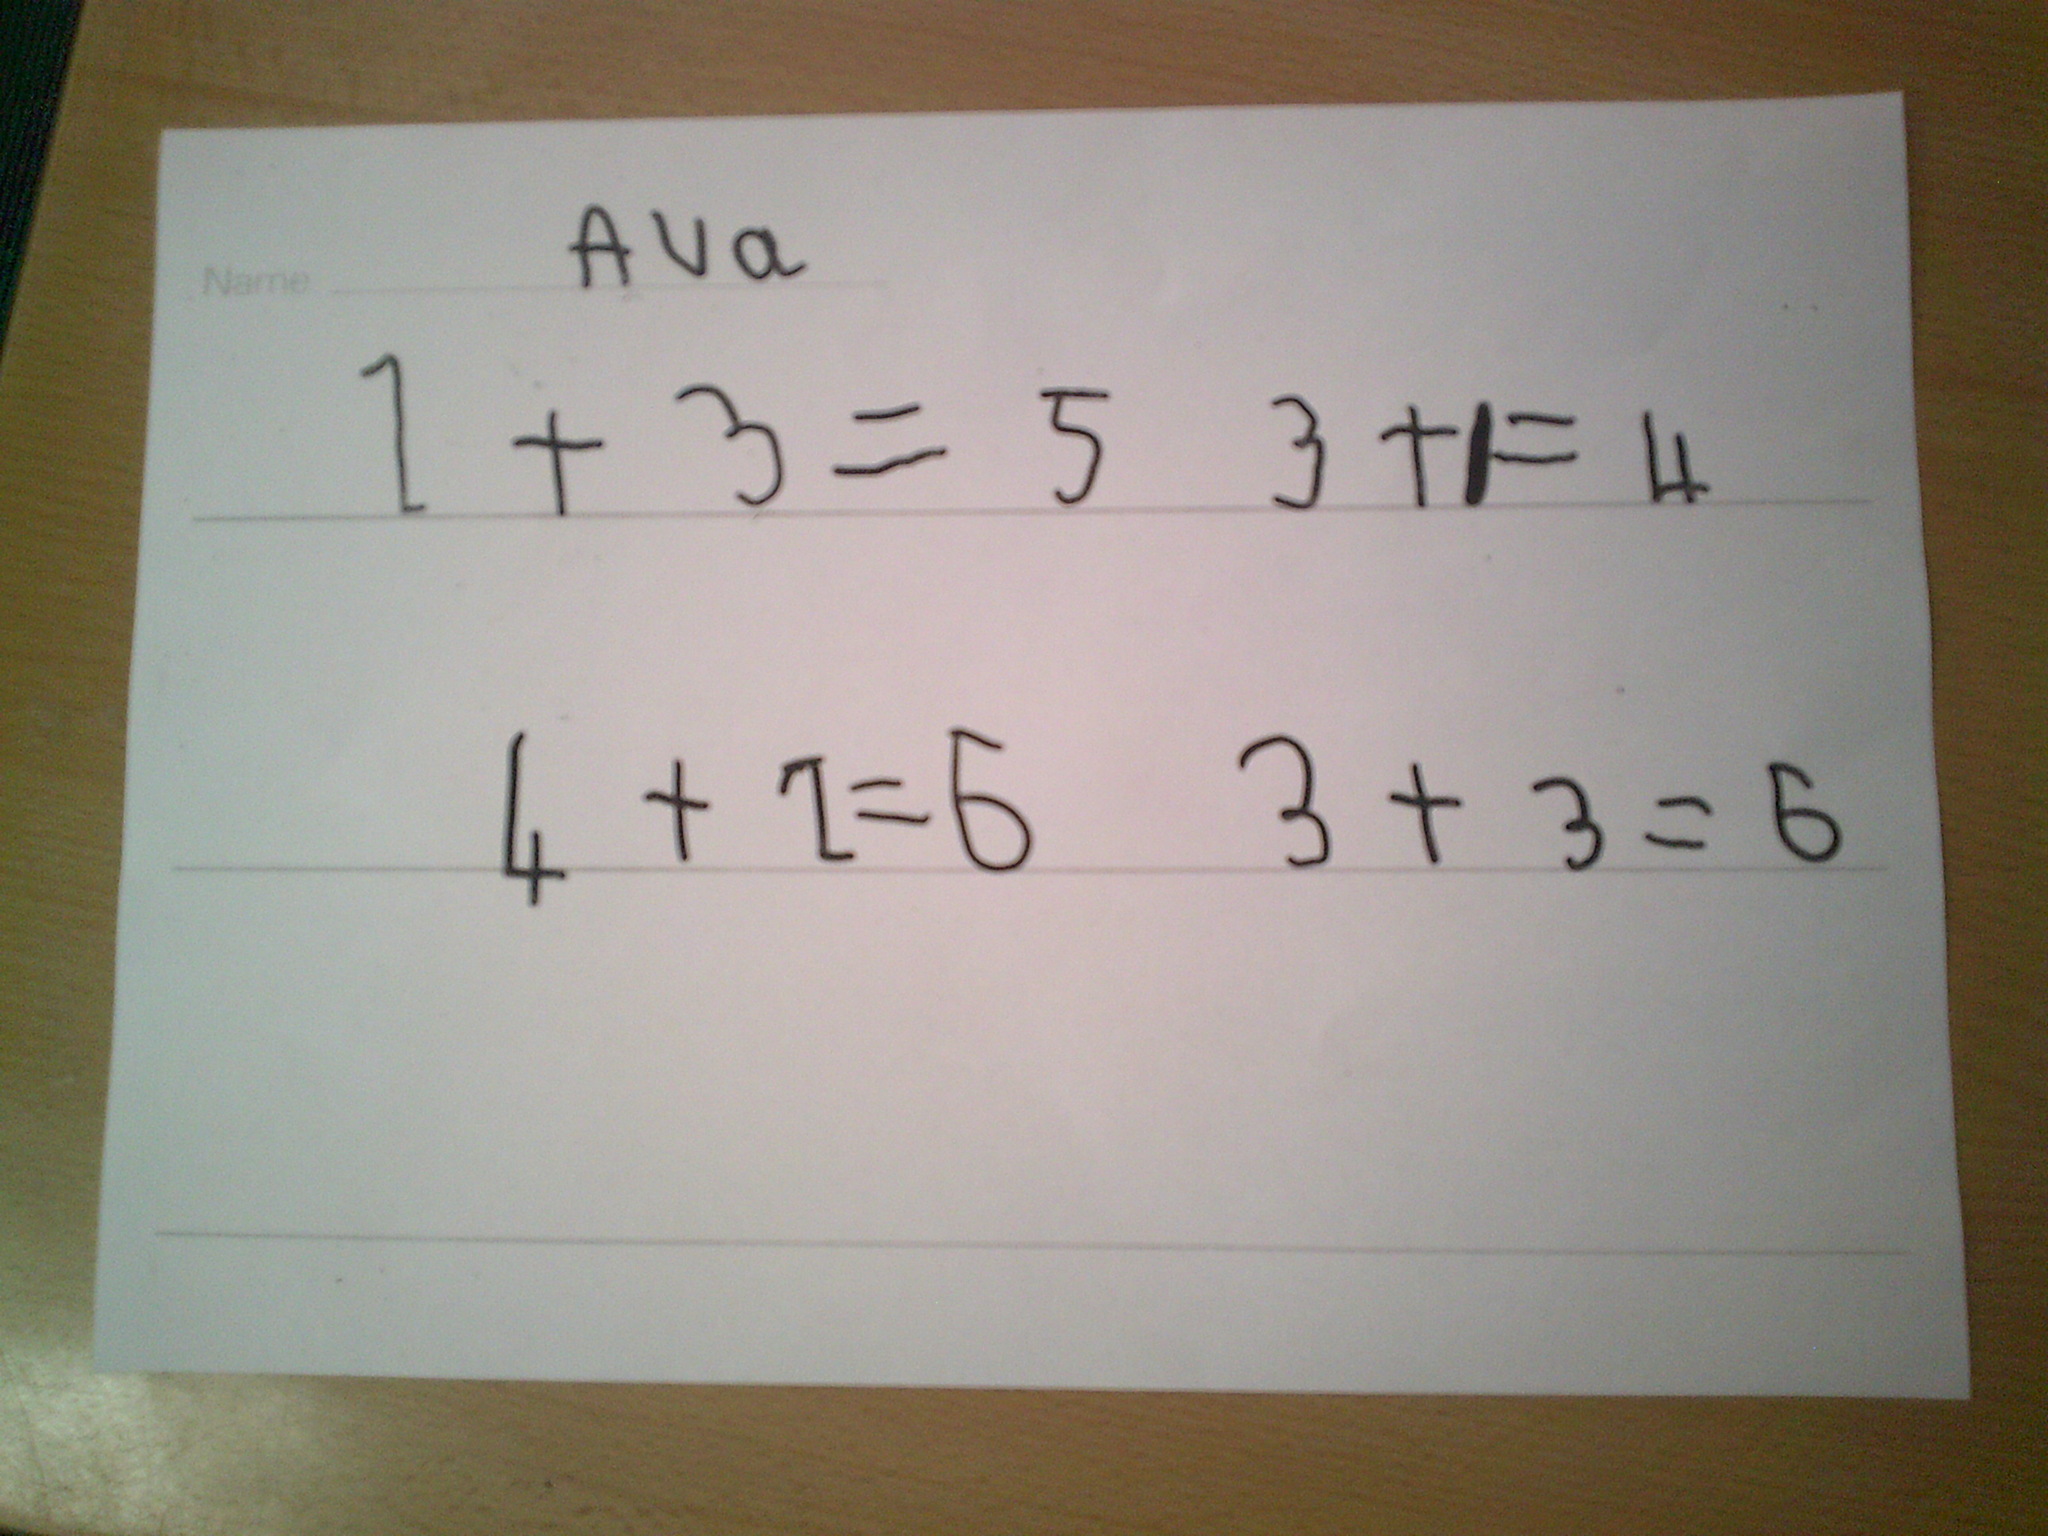 Name Ava
1 + 3 = 5 3 + 1 = 4
4 + 1 = 6 3 + 3 = 6